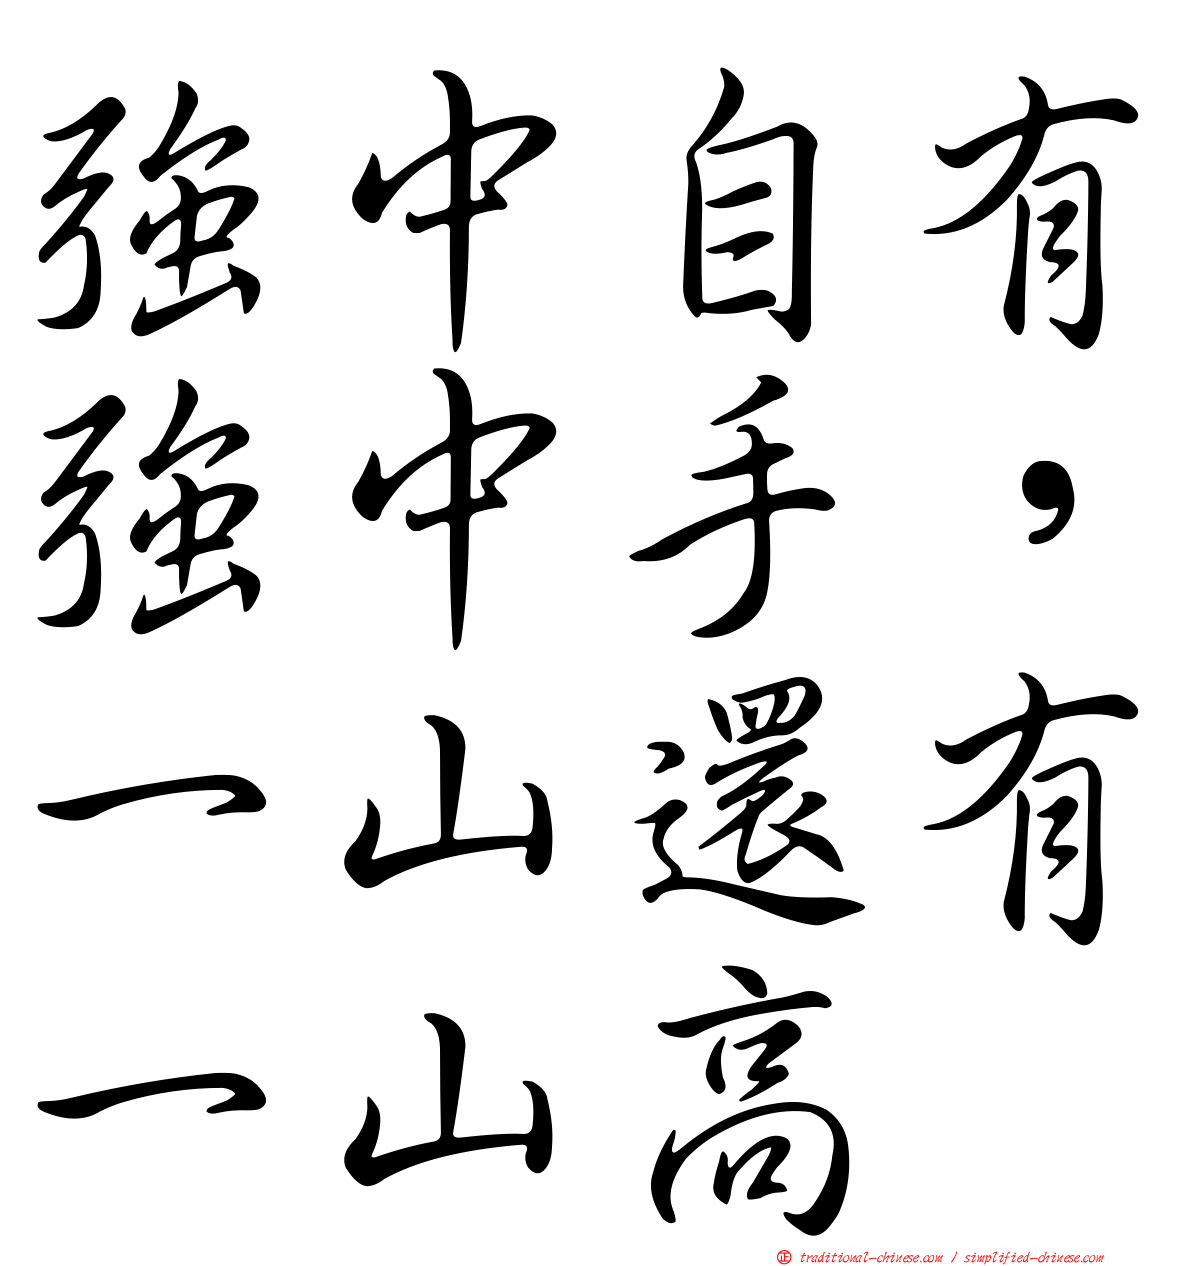 強中自有
強中手，
一山還有
一山高
㊣ traditional-chinese.com / simplified-chinese.com